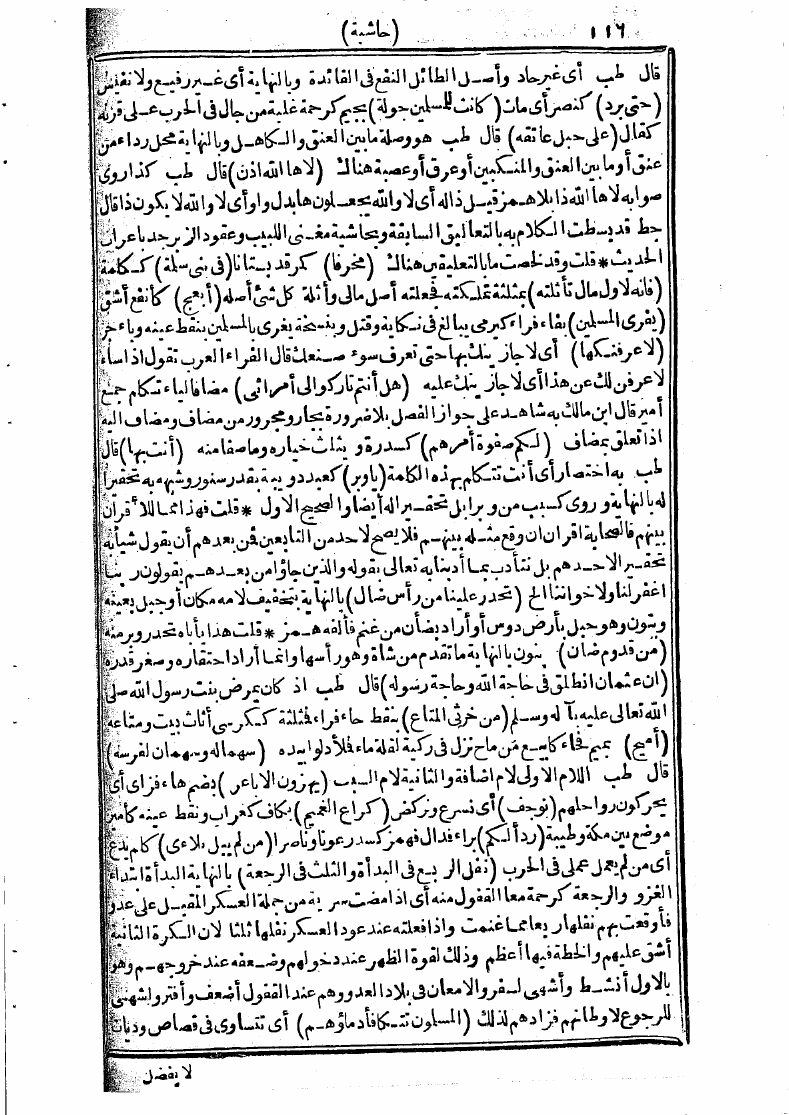 ١١٦ (حاشية)
قال طب أى غير جاد وأصل الطائل النفع فى الفائدة وبالنهاية أى غير رفيع ولا نفيس
(حتى برد) كنصر أى مات (كانت للمسلمين جولة) بجيم كرحمة غلبة من جال فى الحرب على قرنه
كقال (على حبل عاتقه) قال طب هو وصلة ما بين العنق والكاهل وبالنهاية محل رداء من
عنق أو ما بين العنق والمنكبين أو عرق أو عصبة هناك (لاها الله اذن) قال طب كذا روى
صوابه لاها الله ذا بلا همز قيل ذاله أى لا والله يجعلون ها بدل واو أى لا والله لا يكون ذا قال
حط قد بسطت الكلام به بالتعاليق السابقة وبحاشية مغنى اللبيب وعقود الزبرجد باعراب
الحديث * قلت وقد لخصت ما بالتعليقين هناك (مخرفا) كمرقد بستانا (فى بنى سلمة) ككلمة
(فانه لاول مال تأثلته) بمثلثة تملكته فجعلته أصل مالى وأثلة كل شئ أصله (أبعج) كأنفع أشق
(يفرى المسلمين) بفاء فراء كيرمى يبالغ فى نكاية وقتل وبنسخة يغرى بالمسلمين بنقط عينه وباء جر
(لاعرفنكها) أى لاجازينك بها حتى تعرف سوء صنعك قال الفراء العرب تقول اذا ساء
لاعرفن لك عن هذا أى لاجازينك عليه (هل أنتم تاركوا لى أمرائى) مضافا لياء تكلم جمع
أمير قال ابن مالك به شاهد على جواز الفصل بلا ضرورة بجار ومجرور من مضاف ومضاف اليه
اذا تعلق بمضاف (لكم صفوة أمرهم) كسدرة ويثلث خياره وما صفا منه (أنت بها) قال
طب به اختصار أى أنت تتكلم بهذه الكلمة (ياوبر) كعبد دويبة بقدر سنور وشبهه به تحقيرا
له بالنهاية وروى كسبب من وبر ابل تحقيرا له أيضا والصحيح الاول * قلت فهذا مما للا قرآن
بينهم فالصحابة اقران ان وقع مثله بينهم فلا يصح لاحد من التابعين فمن بعدهم أن يقول شيأ به
تحقير الاحدهم بل نتأدب بما أدبنا به تعالى بقوله والذين جاؤا من بعدهم يقولون ربنا
اغفر لنا ولاخواننا الخ (تحدر علينا من رأس ضال) بالنهاية بتخفيف لامه مكان أو جبل بعينه
وبنون وهو جبل بأرض دوس أو أراد به ضأن من غنم فألفه همز * قلت هذا يأباه تحدر وبرمنه
(من قدوم ضان) بنون بالنهاية ما تقدم من شاة وهو رأسها وانما أراد احتقاره وصغر قدره
(ان عثمان انطلق فى حاجة الله وحاجة رسوله) قال طب اذ كان يمرض بنت رسول الله صلى
الله تعالى عليه بآله وسلم (من خرثى المتاع) بنقط حاء فراء فمثلثة ككرسى أثاث بيت ومتاعه
(أميح) بميم فحاء كابيع من ماح نزل فى ركية لقلة ماء فملأ دلوا بيده (سهما له وسهمان لفرسه)
قال طب اللام الاولى لام اضافة والثانية لام السبب (يهزون الاباعر) بضم هاء فزاى أى
يحركون رواحلهم (نوجف) أى نسرع ونركض (كراع الغميم) بكاف كغراب ونقط عينه كأمير
موضع بين مكة وطيبة (ردأ لكم) براء فدال فهمز كسدر عونا وناصرا (من لم يبل بلاءى) كلم يدع
أى من لم يعمل عملى فى الحرب (نفل الربع فى البدأة والثلث فى الرجعة) بالنهاية البدأة ابتداء
الغزو والرجعة كرحمة معا القفول منه أى اذا مضت سرية من جملة العسكر المقبل على عدو
فأوقعت بهم نفلها ربعا مما غنمت واذا فعلته عند عود العسكر نفلها ثلثا لان الكرة الثانية
أشق عليهم والخطة فيها أعظم وذلك لقوة الظهر عند دخولهم وضعفه عند خروجهم وهو
بالاول أنشط وأشهى لسفر والامعان فى بلاد العدو وهم عند القفول أضعف وأفتر وأشهى
للرجوع لاوطانهم فزادهم لذلك (المسلمون تتكافأ دماؤهم) أى تتساوى فى قصاص وديات
لا يفضل